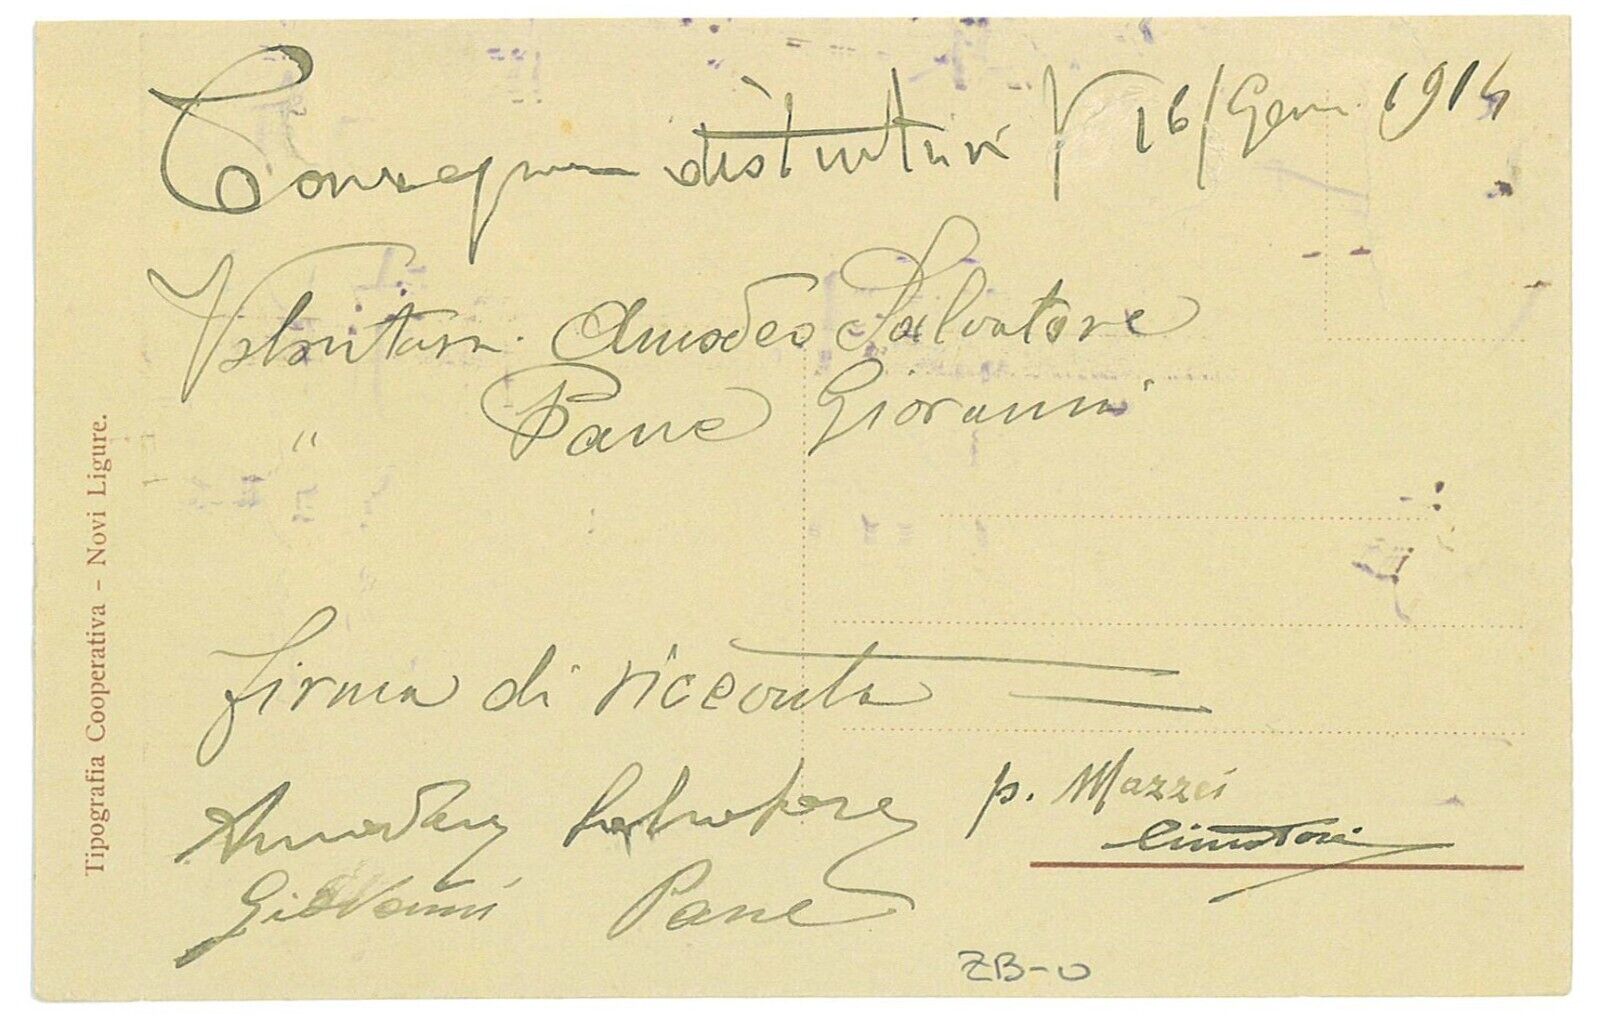 Consegna distintivi 16/Genn. 1914
Volontari. Amodeo Salvatore
" Pane Giovanni
firma di ricevuta
Amodeo Salvatore
p. Mazzei
Giovanni Pane
Tipografia Cooperativa - Novi Ligure.
ZB-U